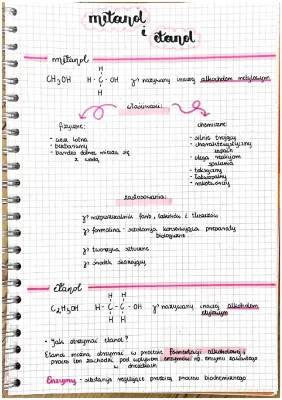 metanol
i etanol
metanol
CH₃OH
H
H - C - OH
H
nazywany inaczej alkoholem metylowym
właściwości:
fizyczne:
- ciecz lotna
- bezbarwny
- bardzo dobrze miesza się
z wodą
chemiczne:
- silnie trujący
- charakterystyczny
zapach
- ulega reakcjom
spalania
- toksyczny
- łatwopalny
- narkotyczny
zastosowania:
rozpuszczalnik farb, lakierów i tłuszczów
formalina - substancja konserwująca preparaty
biologiczne
tworzywa sztuczne
środek
etanol
C₂H₅OH
H H
H - C - C - OH
H H
nazywany inaczej alkoholem
etylowym
• Jak otrzymać etanol?
Etanol można otrzymać w procesie fermentacji alkoholowej,
proces ten zachodzi pod wpływem enzymów np. enzymu zawartego
w drożdżach
Enzymy - substancje regulujące przebieg procesu biochemicznego